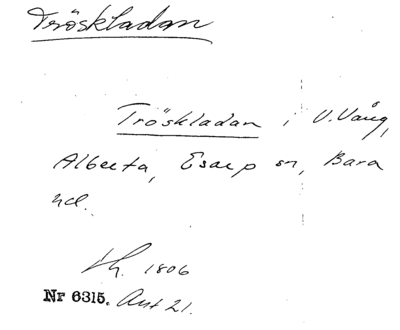 Tröskladan
Tröskladan i V.Vång,
Alberta, Esarp sn, Bara
hd.
1806
Nr 6315. Ant 21.